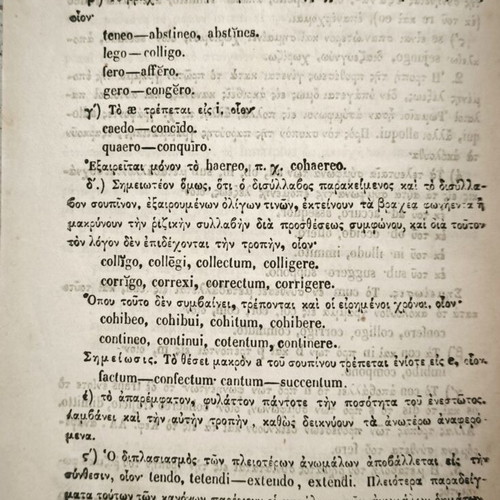 οἷον·
teneo—abstineo, abstĭnes.
lego—colligo.
fero—affĕro.
gero—congĕro.
γ΄) Τὸ æ τρέπεται εἰς i, οἷον·
caedo—concīdo.
quaero—conquīro.
Ἐξαιρεῖται μόνον τὸ haereo, π. χ. cohaereo.
δ΄.) Σημειωτέον ὅμως, ὅτι ὁ δισύλλαβος παρακείμενος καὶ τὸ δισύλλα-
βον σουπῖνον, ἐξαιρουμένων ὀλίγων τινῶν, ἐκτείνουν τὰ βραχέα φωνήεντα ἢ
μακρύνουν τὴν ῥιζικὴν συλλαβὴν διὰ προσθέσεως συμφώνου, καὶ διὰ τοῦτον
τὸν λόγον δὲν ἐπιδέχονται τὴν τροπὴν, οἷον·
collĭgo, collēgi, collectum, colligere.
corrĭgo, correxi, correctum, corrigere.
Ὅπου τοῦτο δὲν συμβαίνει, τρέπονται καὶ οἱ εἰρημένοι χρόνοι. οἷον·
cohibeo, cohibui, cohitum, cohibere.
contineo, continui, cotentum, continere.
Σημείωσις. Τὸ θέσει μακρὸν a τοῦ σουπίνου τρέπεται ἐνίοτε εἰς e, οἷον·
factum—confectum· cantum—succentum.
έ) τὸ ἀπαρέμφατον, φυλάττον πάντοτε τὴν ποσότητα τοῦ ἐνεστῶτος,
λαμβάνει καὶ τὴν αὐτὴν τροπὴν, καθὼς δεικνύουν τὰ ἀνωτέρω ἀναφερό-
μενα.
ς΄) Ὁ διπλασιασμὸς τῶν πλειοτέρων ἀνωμάλων ἀποβάλλεται εἰς τὴν
σύνθεσιν, οἷον· tendo, tetendi—extendo, extendi. Πλειότερα παραδείγ-
ματα τούτων τῶν κανόνων